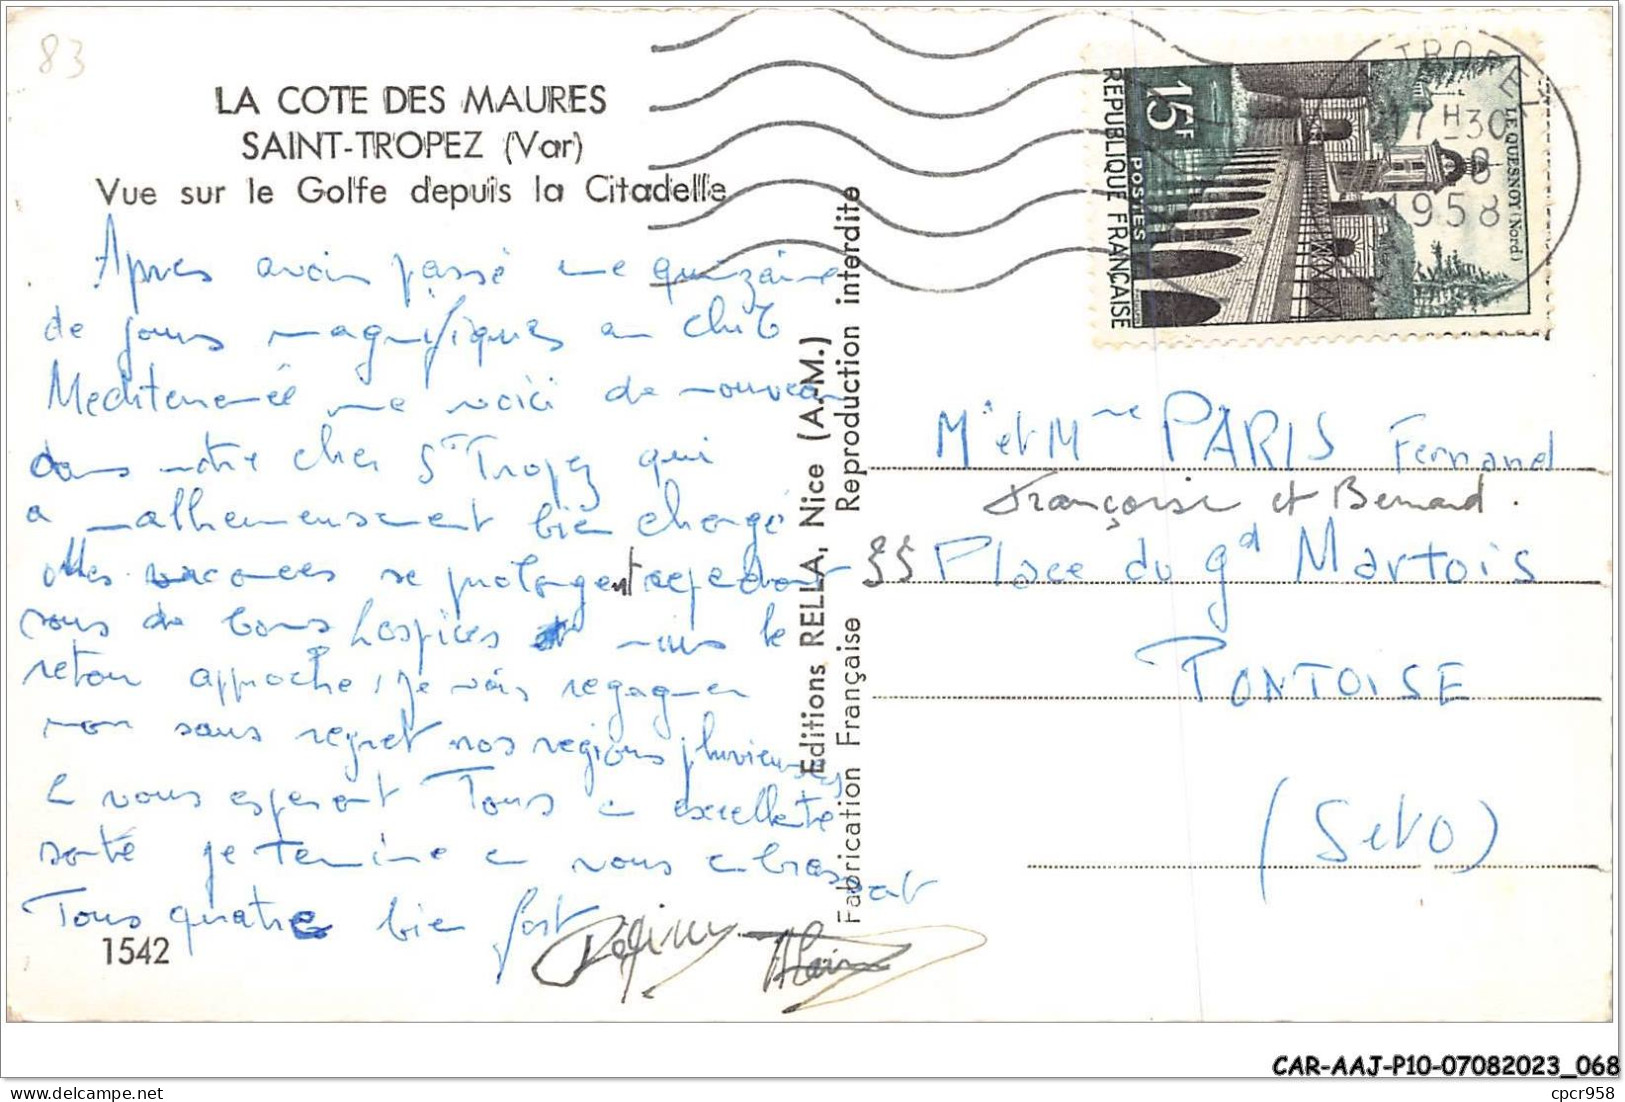 83
LA COTE DES MAURES
SAINT-TROPEZ (Var)
Vue sur le Golfe depuis la Citadelle
Apres avoir passé une quinzaine
de jours magnifiques au club
Mediterranée me voici de nouveau
dans notre cher St Tropez qui
a malheureusement bien changé
Mes vacances se prolongent cependant
sous de bons hospices mais le
retour approche, je vais regagner
non sans regret nos regions pluvieuses
En vous esperant Tous en excellente
santé je termine en vous embrassant
Tous quatre bien fort
Alain
1542
Editions RELLA, Nice (A.-M.)
Fabrication Française
Reproduction interdite
TROPEZ
17H30
8
1958
15F
POSTES
REPUBLIQUE FRANÇAISE
LE QUESNOY (Nord)
Mr et Mme PARIS Fernand
Françoise et Bernard.
55 Place du gd Martois
PONTOISE
(SetO)
CAR-AAJ-P10-07082023_068
cpcr958